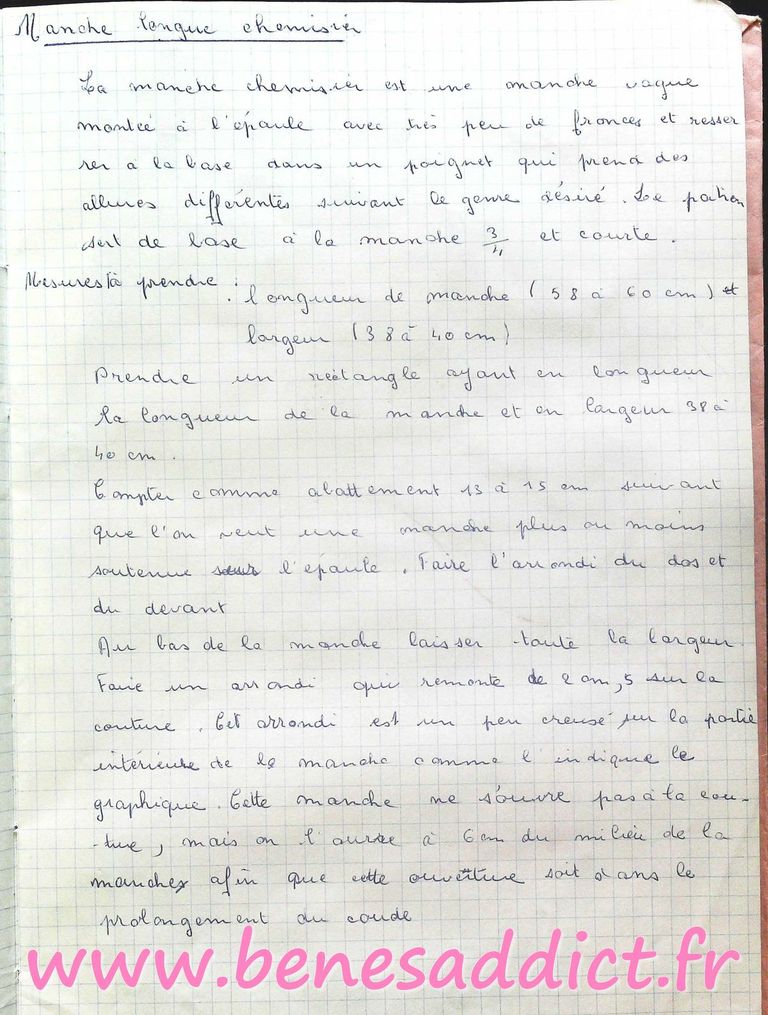 Manche longue chemisier
La manche chemisier est une manche vague
montée à l'épaule avec très peu de fronces et resser
rer a la base dans un poignet qui prend des
allures différentes suivant le genre désiré. Le patron
sert de base à la manche 3/4 et courte.
Mesures à prendre :
. longueur de manche (58 à 60 cm) et
largeur (38 à 40 cm)
Prendre un rectangle ayant en longueur
la longueur de la manche et en largeur 38 à
40 cm.
Compter comme abattement 13 à 15 cm suivant
que l'on veut une manche plus ou moins
soutenue sur l'épaule. Faire l'arrondi du dos et
du devant
Au bas de la manche laisser toute la largeur.
Faire un arrondi qui remonte de 2 cm, 5 sur la
couture. Cet arrondi est un peu creusé sur la partie
intérieure de la manche comme l'indique le
graphique. Cette manche ne s'ouvre pas à la cou-
-ture, mais on l'ouvre à 6 cm du milieu de la
manche afin que cette ouverture soit dans le
prolongement du coude
www.benesaddict.fr